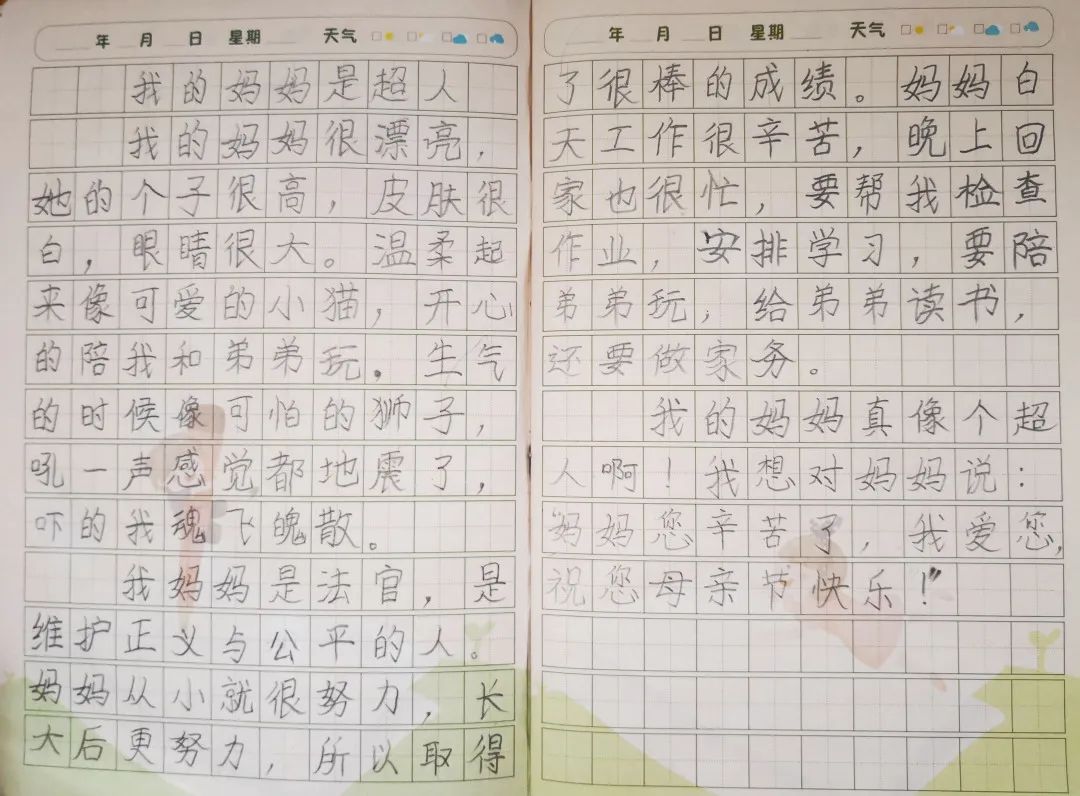 年 月 日 星期 天气
我的妈妈是超人
我的妈妈很漂亮，
她的个子很高，皮肤很
白，眼睛很大。温柔起
来像可爱的小猫，开心
的陪我和弟弟玩。生气
的时候像可怕的狮子，
吼一声感觉都地震了，
吓的我魂飞魄散。
我妈妈是法官，是
维护正义与公平的人。
妈妈从小就很努力，长
大后更努力，所以取得
年 月 日 星期 天气
了很棒的成绩。妈妈白
天工作很辛苦，晚上回
家也很忙，要帮我检查
作业，安排学习，要陪
弟弟玩，给弟弟读书，
还要做家务。
我的妈妈真像个超
人啊！我想对妈妈说：
“妈妈您辛苦了，我爱您，
祝您母亲节快乐！”